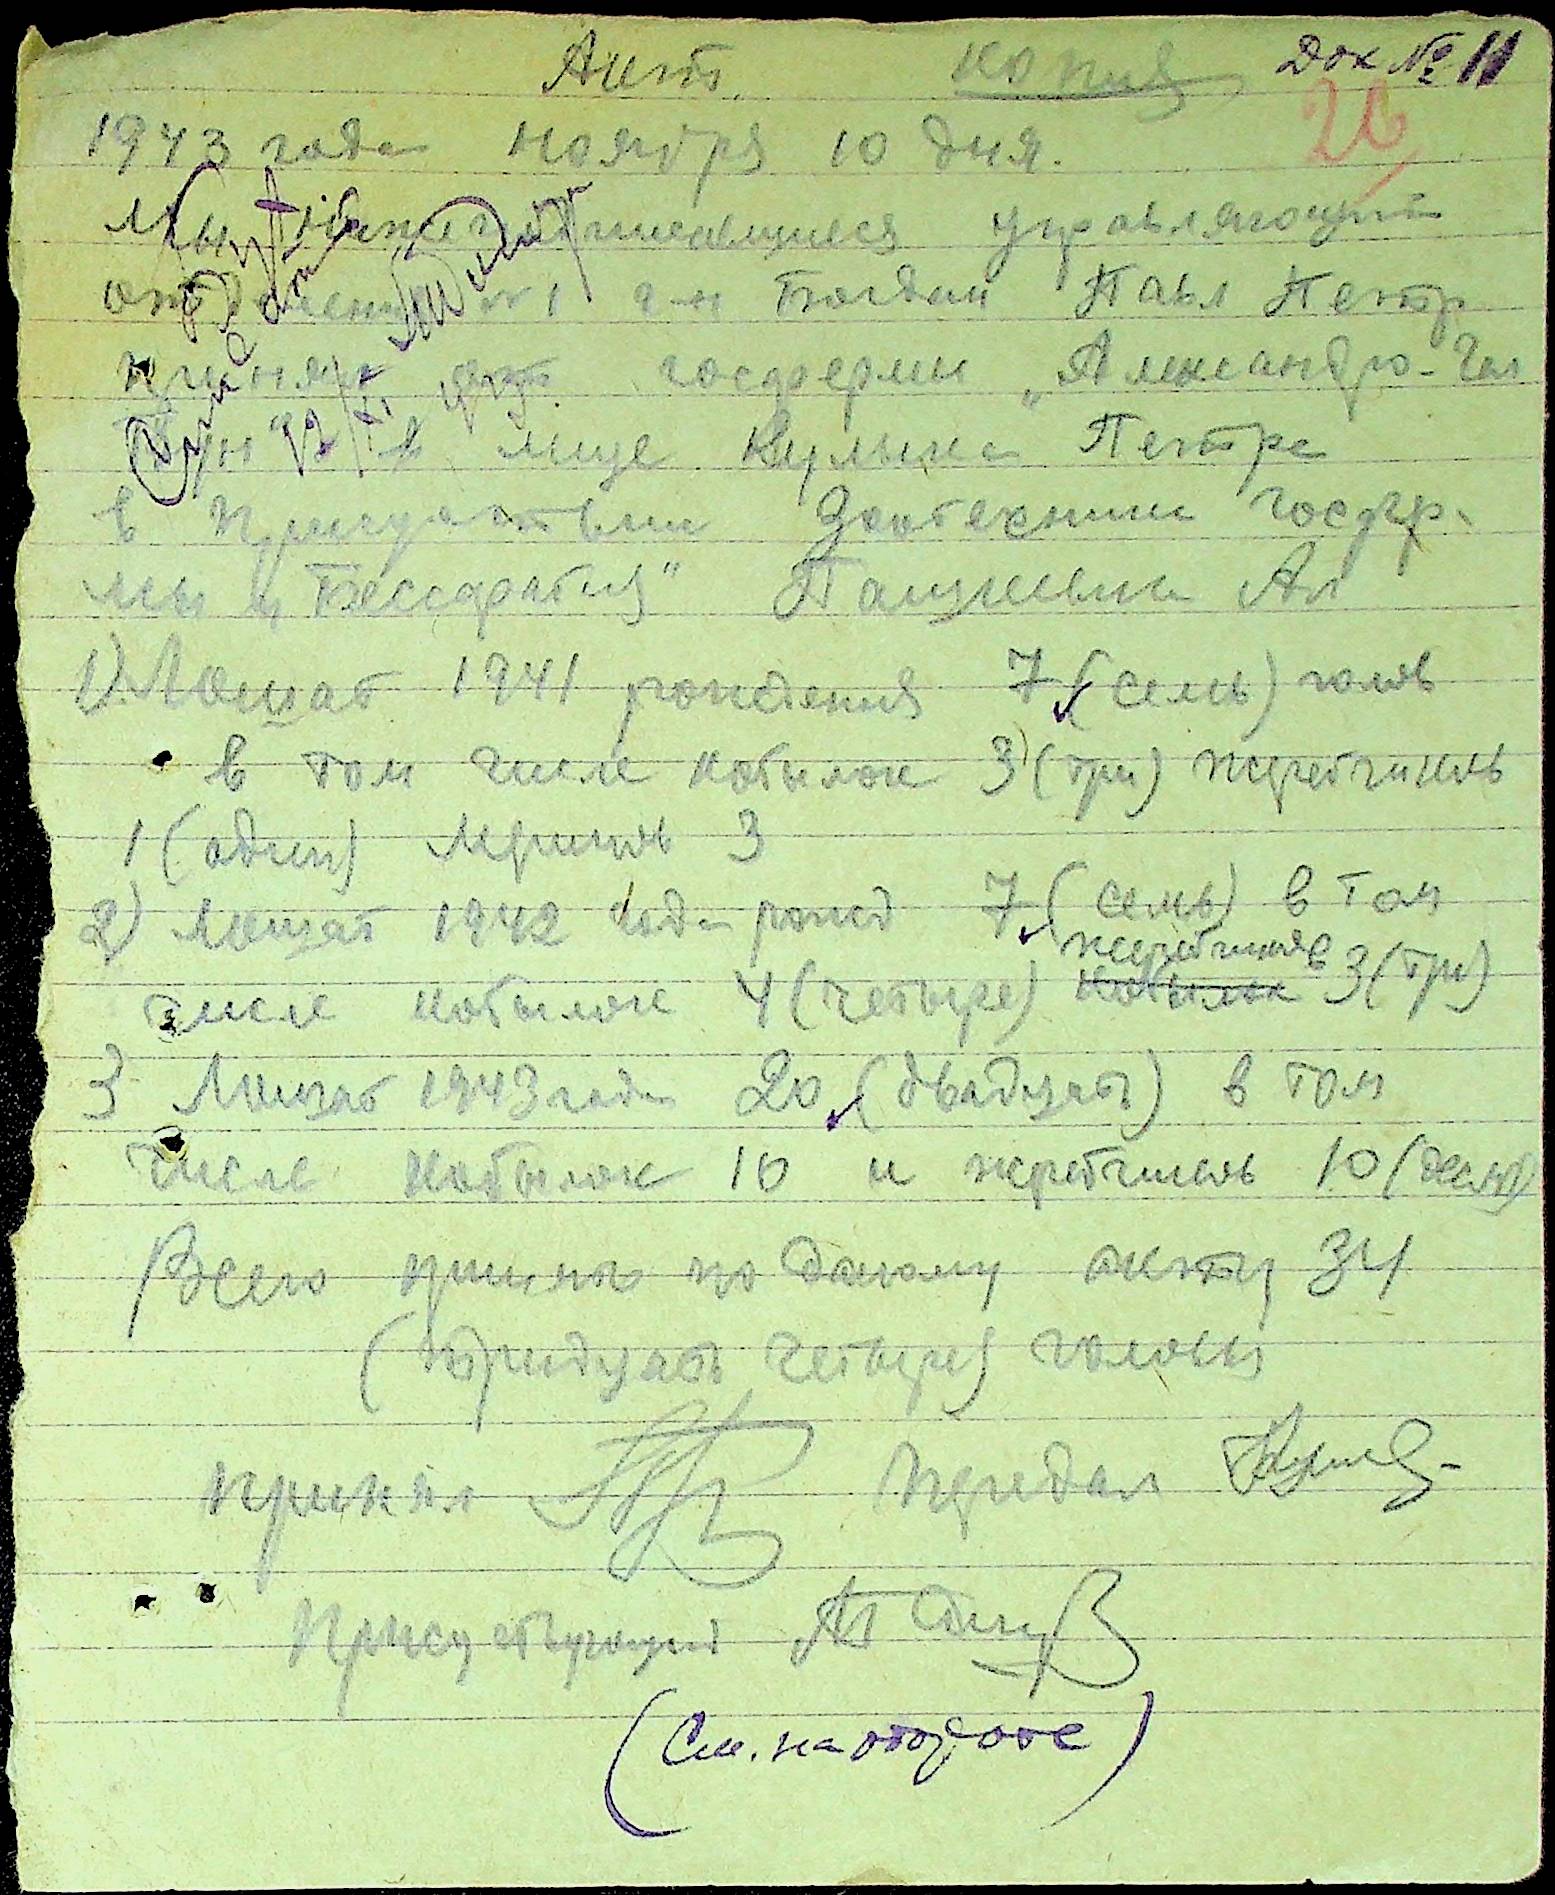 Акт. копия Док № 11
26
1943 года ноября 10 дня.
Мы нижеподписавшиеся управляющий
отделения №1 г-н Богдан Павл Петр
принял от госфермы „Александро-
в лице Кулыка Петра
в присутствии Зоотехника госфер-
мы „Бессарабия" Ал
1). Лошат 1941 рождения 7 (семь) голов
в том числе кобылок 3 (три) жеребчиков
1 (один) меринов 3
2) Лошат 1942 года рожд 7 (семь) в том
жеребчиков
числе кобылок 4 (четыре) кобылок 3 (три)
3 Лошат 1943 года 20 (двадцать) в том
числе кобылок 10 и жеребчиков 10 (десять)
Всего принял по даному акту 34
(тридцать четыре) головы
Принял Передал
Присутствующий
(См. на обороте)